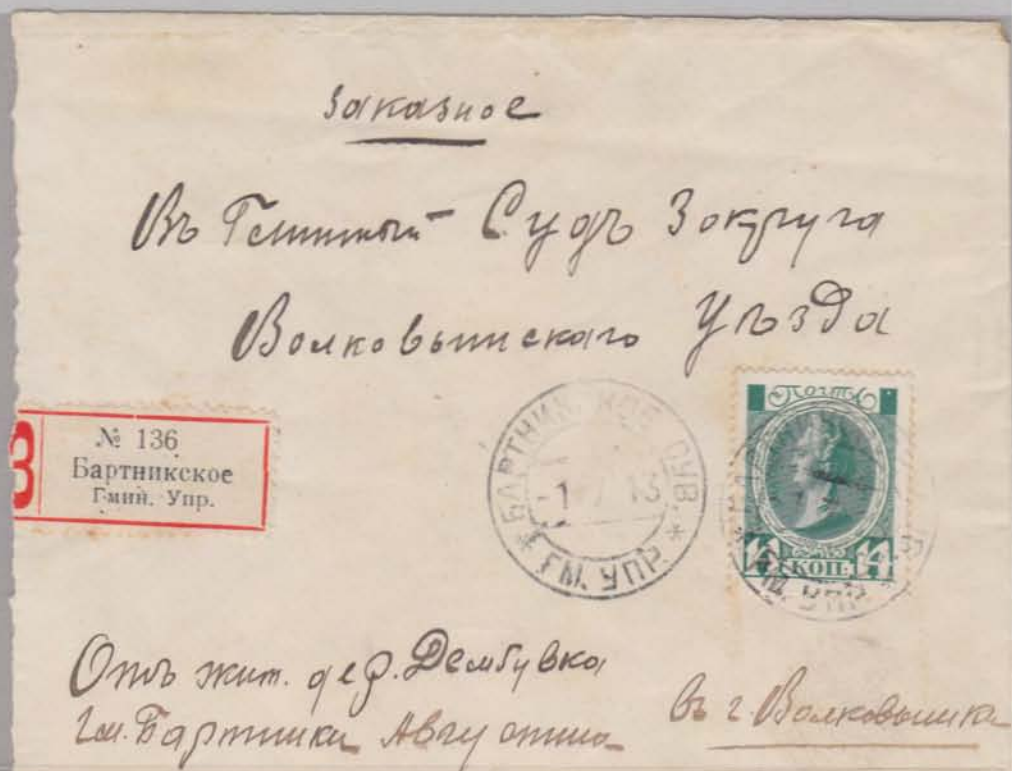 заказное
Въ Гминный Судъ 3 округа
Волковышскаго Уѣзда
№ 136
Бартникское
Гмин. Упр.
З
БАРТНИК КОЕ СУВ.
-1 7 13
ГМ. УПР.
Почта
14 КОП: 14
Отъ жит. дер. Дембувка
Гм. Бартники Августина
въ г. Волковышки